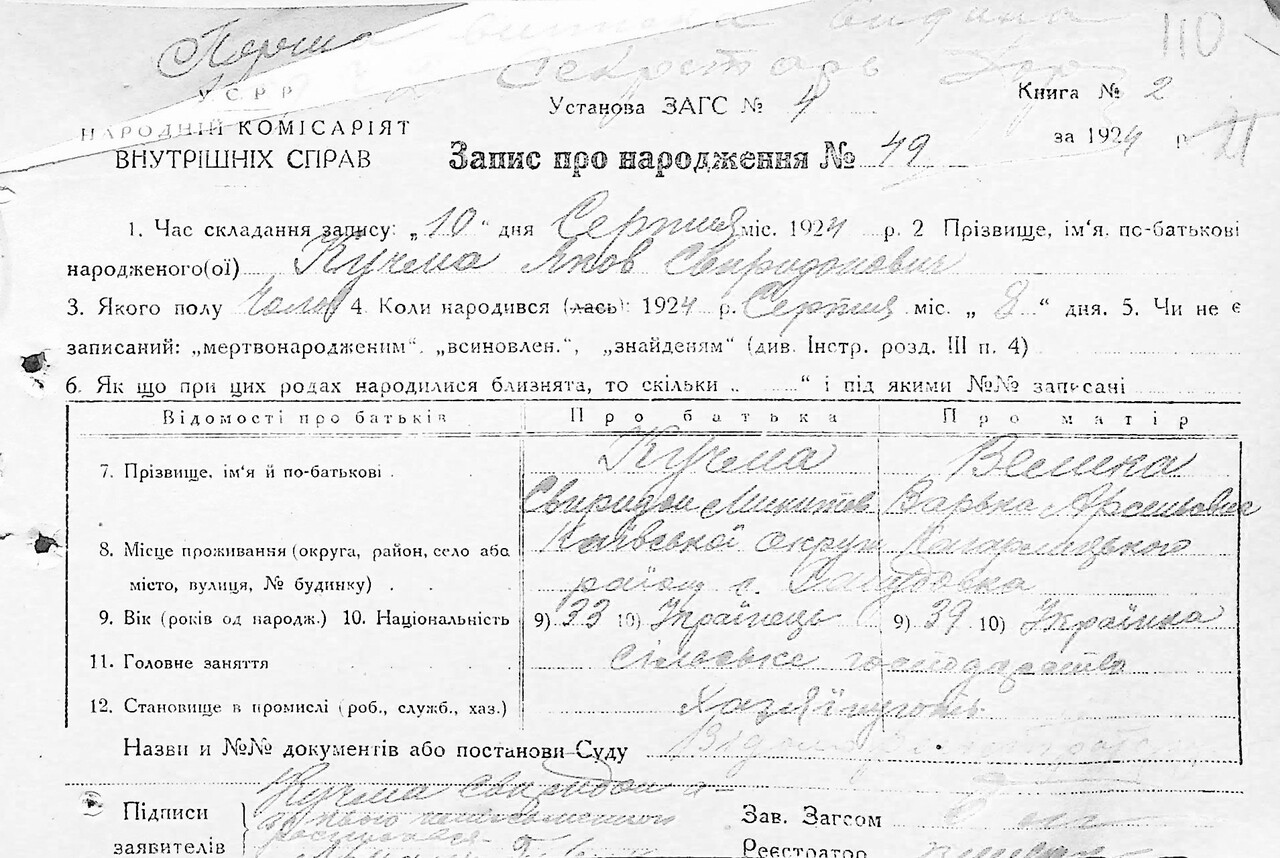 Перша виписка видана
Секретарь
110
У.С.Р.Р.
Установа ЗАГС № 4
Книга № 2
НАРОДНІЙ КОМІСАРІЯТ
ВНУТРІШНІХ СПРАВ
за 1924 р. 21
Запис про народження № 49
1. Час складання запису: „10“ дня Серпня міс. 1924 р. 2 Прізвище, ім'я, по-батькові
народженого(ої) Кучма Яков Свиридонович
3. Якого полу Чолов 4. Коли народився (лась): 1924 р. Серпня міс. „8“ дня. 5. Чи не є
записаний: „мертвонародженим“, „всиновлен.“, „знайденям“ (див. Інстр. розд. III п. 4)
6. Як що при цих родах народилися близнята, то скільки „ “ і під якими №№ записані
Відомості про батьків Про батька Про матір
7. Прізвище, ім'я й по-батькові Кучма Велика
Свиридон Микитов Варька
8. Місце проживання (округа, район, село або Київської округи Кагарлицького
місто, вулиця, № будинку) район с.
9. Вік (років од народж.) 10. Національність 9) 33 10) Українець 9) 39 10) Українка
11. Головне заняття сільське господарство
12. Становище в промислі (роб., служб., хаз.)
Назви и №№ документів або постанови Суду
Підписи Кучма Свиридон а
заявителів
Зав. Загсом
Реєстратор